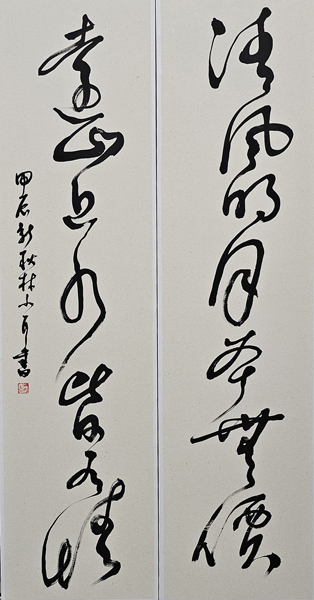 清風明月本無價
遠山近水皆有情
甲辰新秋林小書